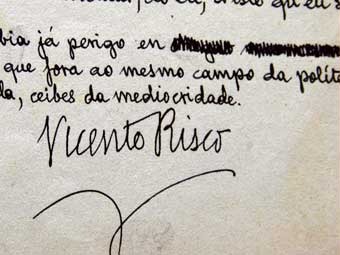 cristo qu'eu s
bia já perigo en
que fora ao mesmo campo da polít
la, ceibes da mediocridade.
Vicento Risco